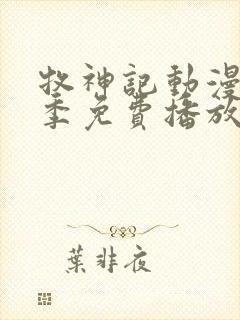 牧神記動漫
季免費播放
葉非夜